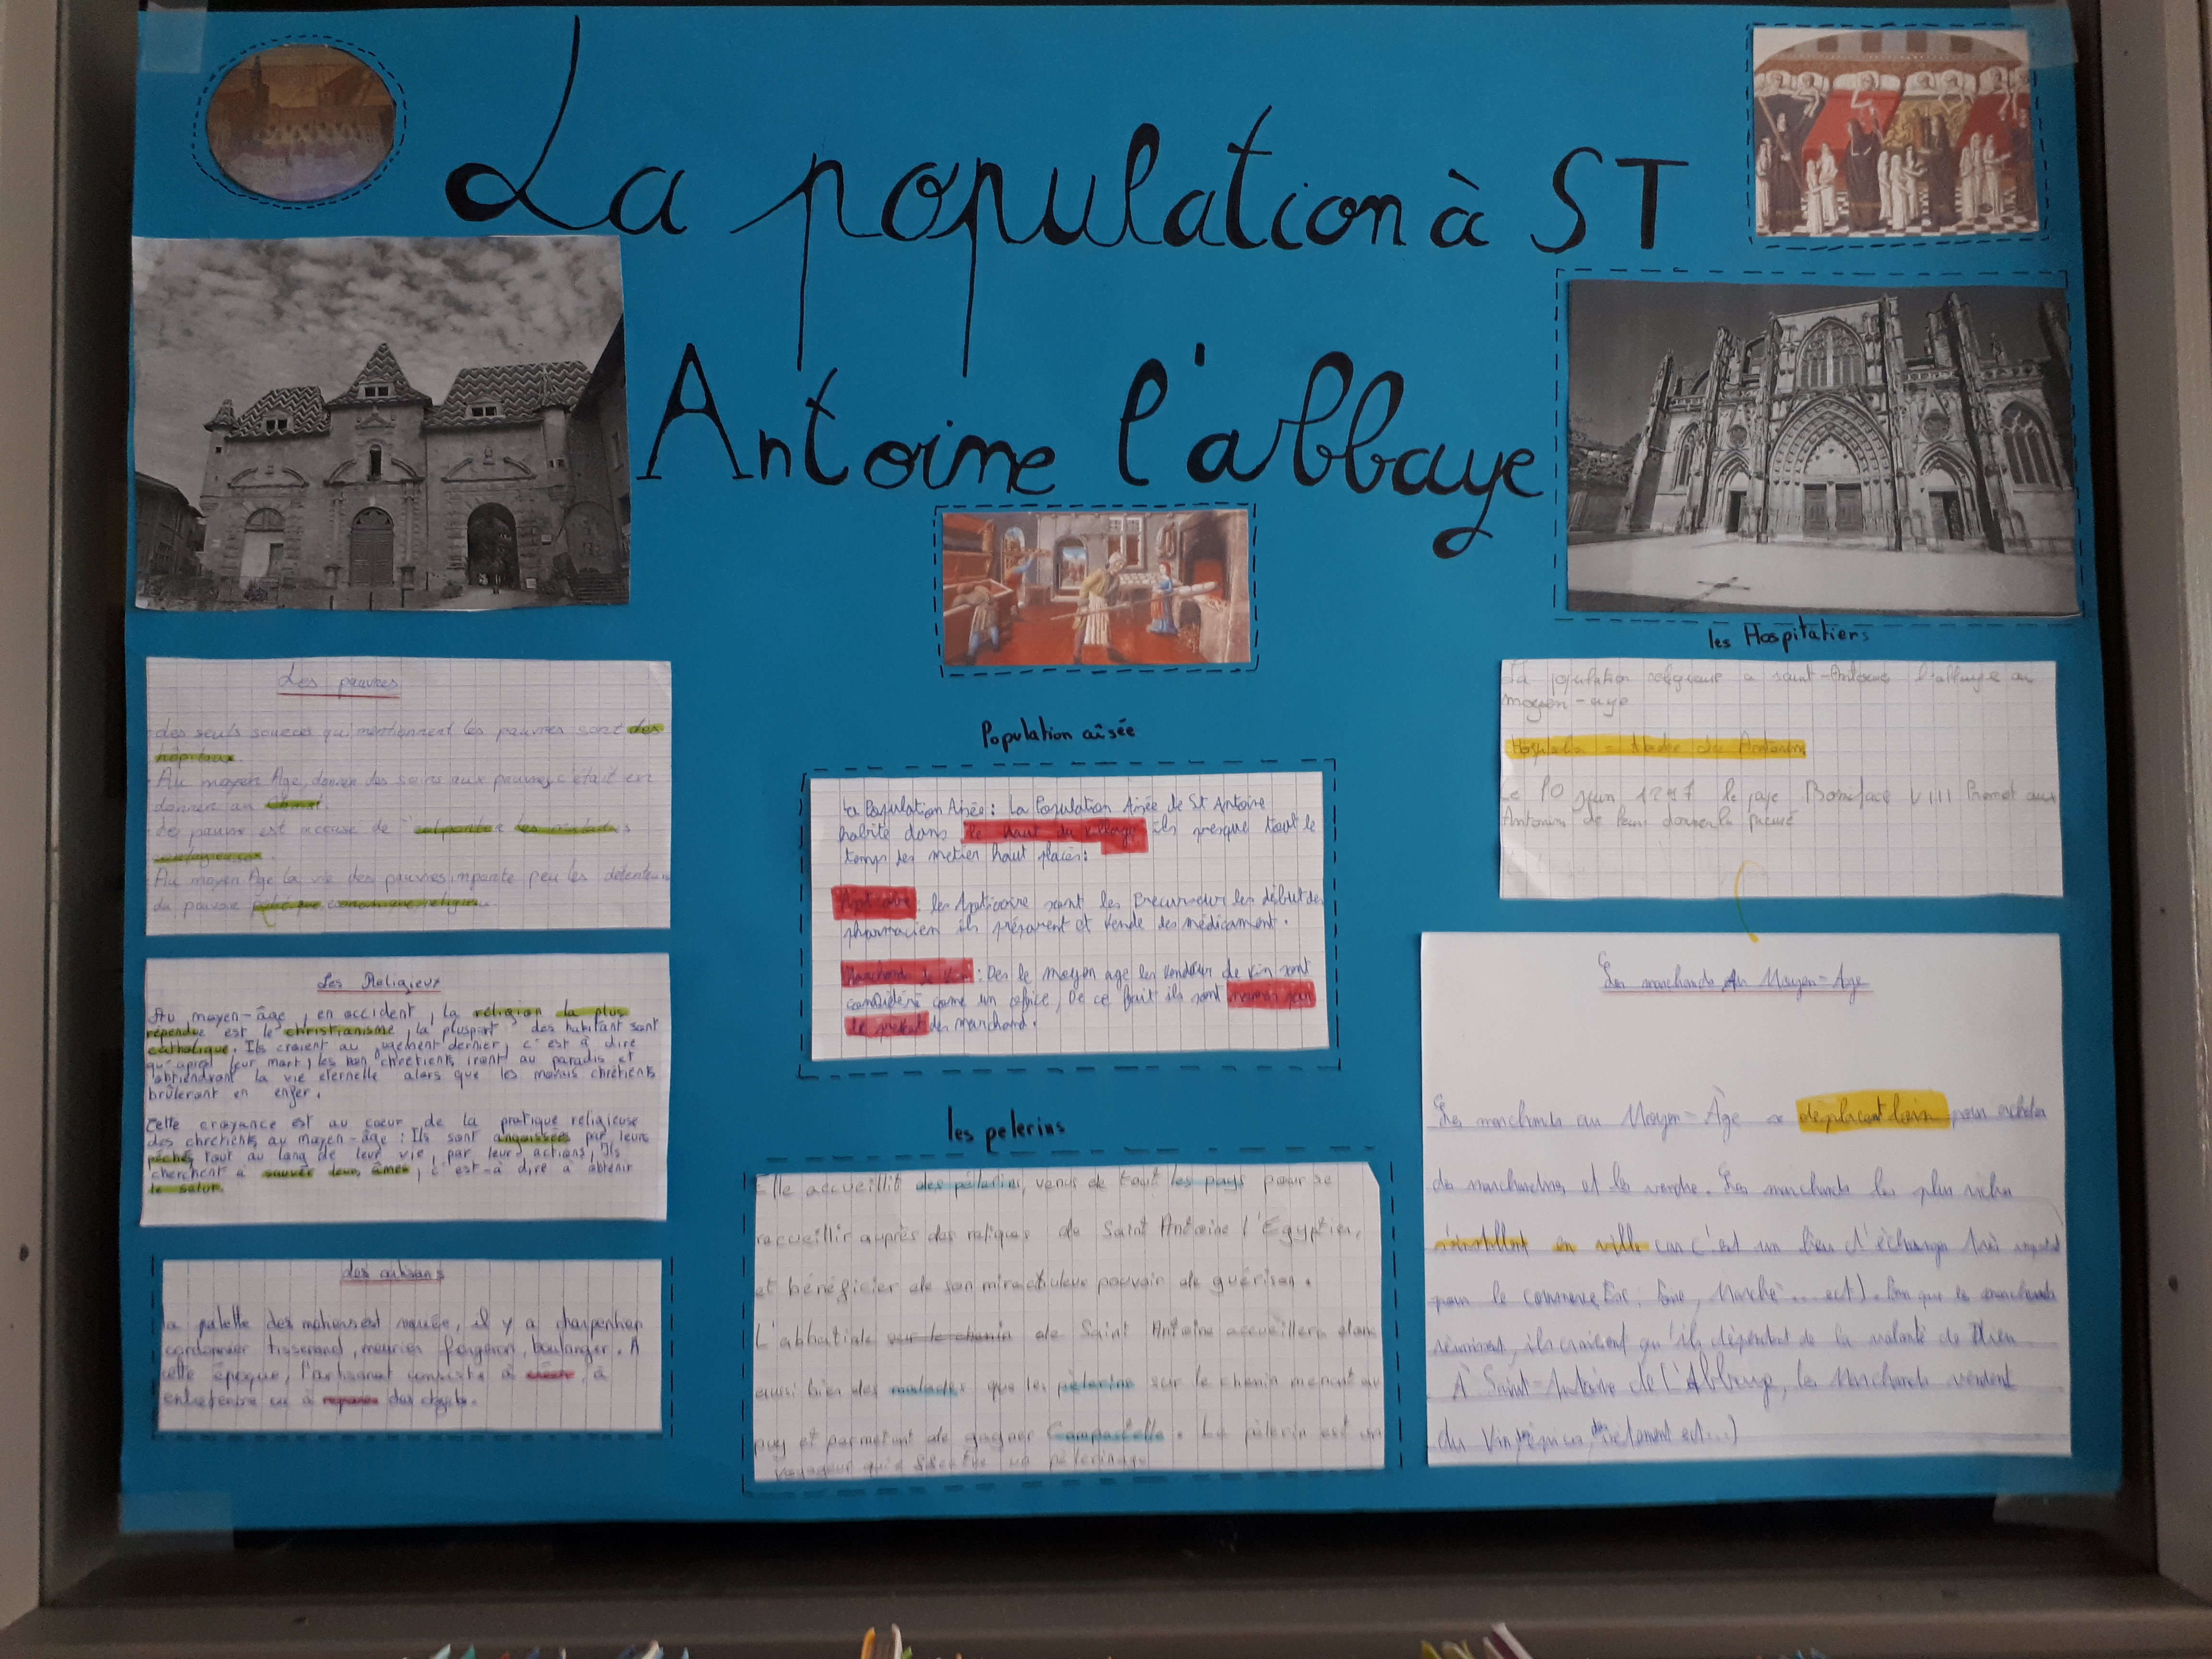 La population à ST
Antoine l'abbaye
Les pauvres
des seuls sources qui mentionnent les pauvres sont des
hôpitaux.
Au moyen Age, donner des soins aux pauvres c'était en
donner au
Le pauvre est accusé de les maladies
Au moyen Age la vie des pauvres importe peu les détenteurs
du pouvoir
Les Religieux
Au moyen-âge, en occident, la religion la plus
répendue est le christianisme, la pluspart des habitant sont
catholique. Ils croient au jugement dernier, c'est à dire
qu'aprés leur mort, les bon chrétients iront au paradis et
obtiendront la vie éternelle alors que les mavais chrétients
brûleront en enfer.
Cette croyance est au cœur de la pratique religieuse
des chrétients au moyen-âge : Ils sont angoissées par leurs
péchés tout au long de leur vie, par leurs actions, Ils
cherchent à sauver leurs âmes, c'est-à dire à obtenir
le salut.
des artisans
la palette des métiers est variée, il y a charpentier
cordonnier tisserand, meunier forgeron, boulanger. A
cette époque, l'artisanat consiste à à
entretenire ou à réparer des objets.
Population aisée
La Population Aisée : La Population Aisée de St Antoine
habite dans le haut du village ils presque tout le
temps des metier haut placés :
les Apticaire sont les Precurseur les début des
pharmacien ils préparent et vende des médicament.
Marchands de Vin : Des le moyen age les vendeur de vin sont
considéré come un office, De ce fait ils sont
le prévot des marchand.
les pelerins
Elle accueillit des pélerins, venus de tout les pays pour se
recueillir auprès des reliques de Saint Antoine l'Egyptien,
et bénéficier de son miraculeux pouvoir de guérison.
L'abbatiale sur le chemin de Saint Antoine accueillera donc
aussi bien des malades que les pèlerins sur le chemin menant au
puy et permettant de gagner Compostelle. Le pèlerin est un
voyageur qui éffectue un pélerinage
les Hospitaliers
La population religieuse a saint-Antoine l'abbaye au
moyen-age
Hospitalier = l'ordre des Antonin
Le 10 juin 1297 le pape Boniface VIII Promet aux
Antonin de leur donner le prieuré
Les marchands Au Moyen-Age
Les marchands au Moyen-Âge se déplacent loin pour acheter
des marchandises et les vendre. Les marchands les plus riches
s'installent en ville car c'est un lieu d'échange très
pour le commerce foire, Marché ... ect). Bien que les marchands
réussissent, ils croient qu'ils dépendent de la volonté de Dieu
À Saint-Antoine de l'Abbaye, les Marchands vendent
du Vin, épices, vêtement ect...)